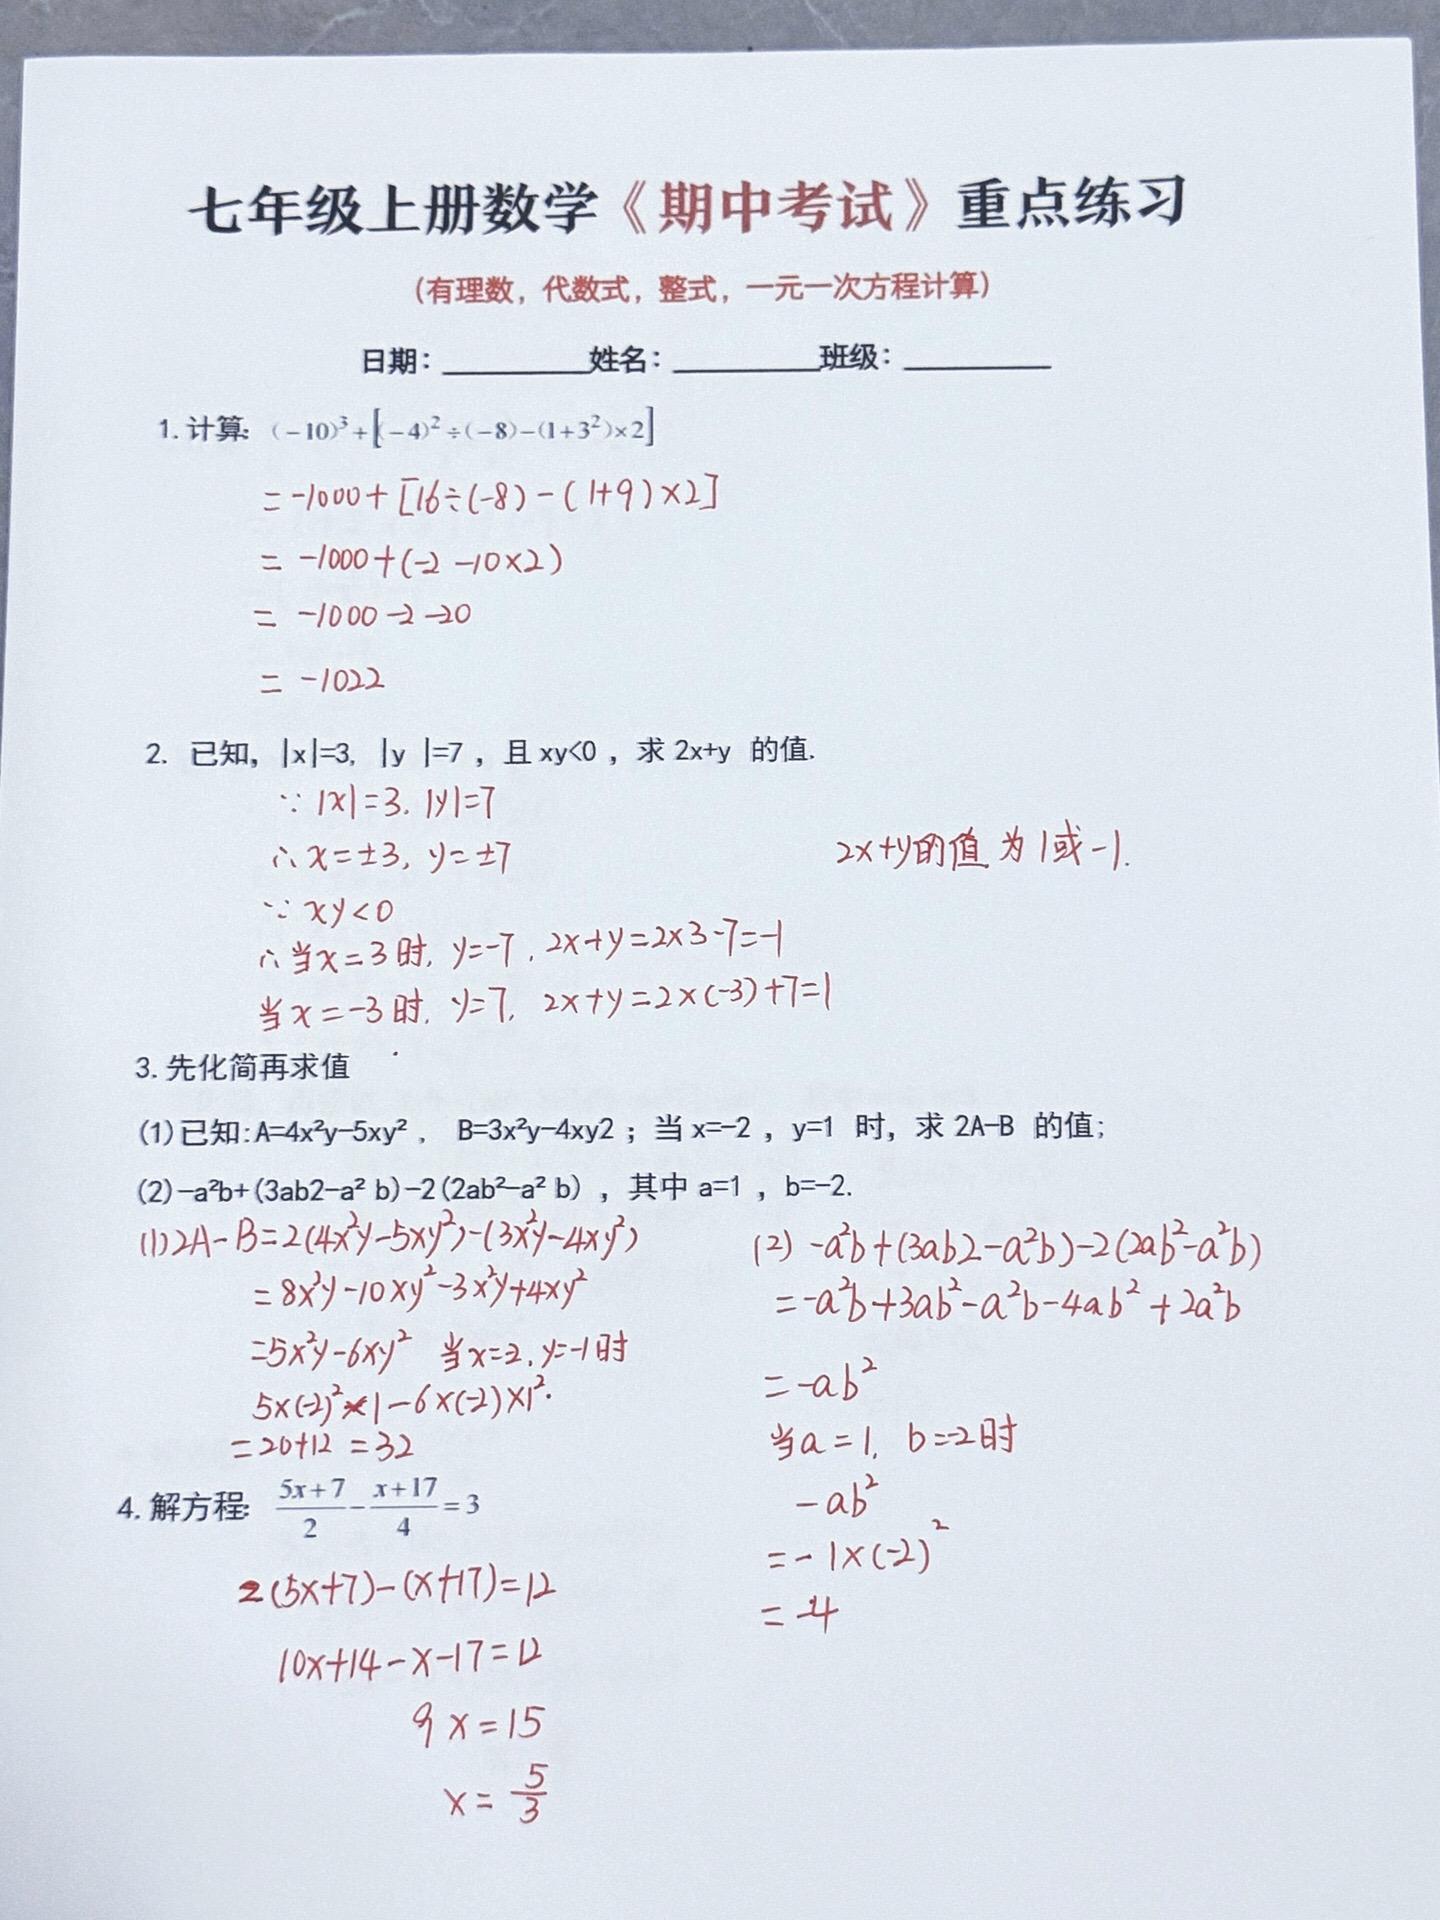 七年级上册数学《期中考试》重点练习
（有理数，代数式，整式，一元一次方程计算）
日期：__________姓名：__________班级：__________
1.计算：(-10)³+[(-4)²÷(-8)-(1+3²)×2]
=-1000+[16÷(-8)-(1+9)×2]
=-1000+(-2-10×2)
=-1000-2-20
=-1022
2. 已知，|x|=3, |y |=7 ，且 xy<0 ，求 2x+y 的值.
∵|x|=3. |y|=7
∴x=±3, y=±7
2x+y的值为1或-1.
∵xy<0
∴当x=3时, y=-7, 2x+y=2×3-7=-1
当x=-3时, y=7, 2x+y=2×(-3)+7=1
3.先化简再求值
(1)已知:A=4x²y-5xy² , B=3x²y-4xy2 ；当 x=-2 ，y=1 时，求 2A-B 的值；
(2)-a²b+(3ab2-a² b)-2(2ab²-a² b) ，其中 a=1 ，b=-2.
(1)2A-B=2(4x²y-5xy²)-(3x²y-4xy²)
=8x²y-10xy²-3x²y+4xy²
=5x²y-6xy² 当x=2, y=-1时
5×(-2)²×1-6×(-2)×1².
=20+12=32
(2) -a²b+(3ab2-a²b)-2(2ab²-a²b)
=-a²b+3ab²-a²b-4ab²+2a²b
=-ab²
当a=1, b=-2时
-ab²
=-1×(-2)²
=-4
4.解方程：(5x+7)/2-(x+17)/4=3
2(5x+7)-(x+17)=12
10x+14-x-17=12
9x=15
x=5/3